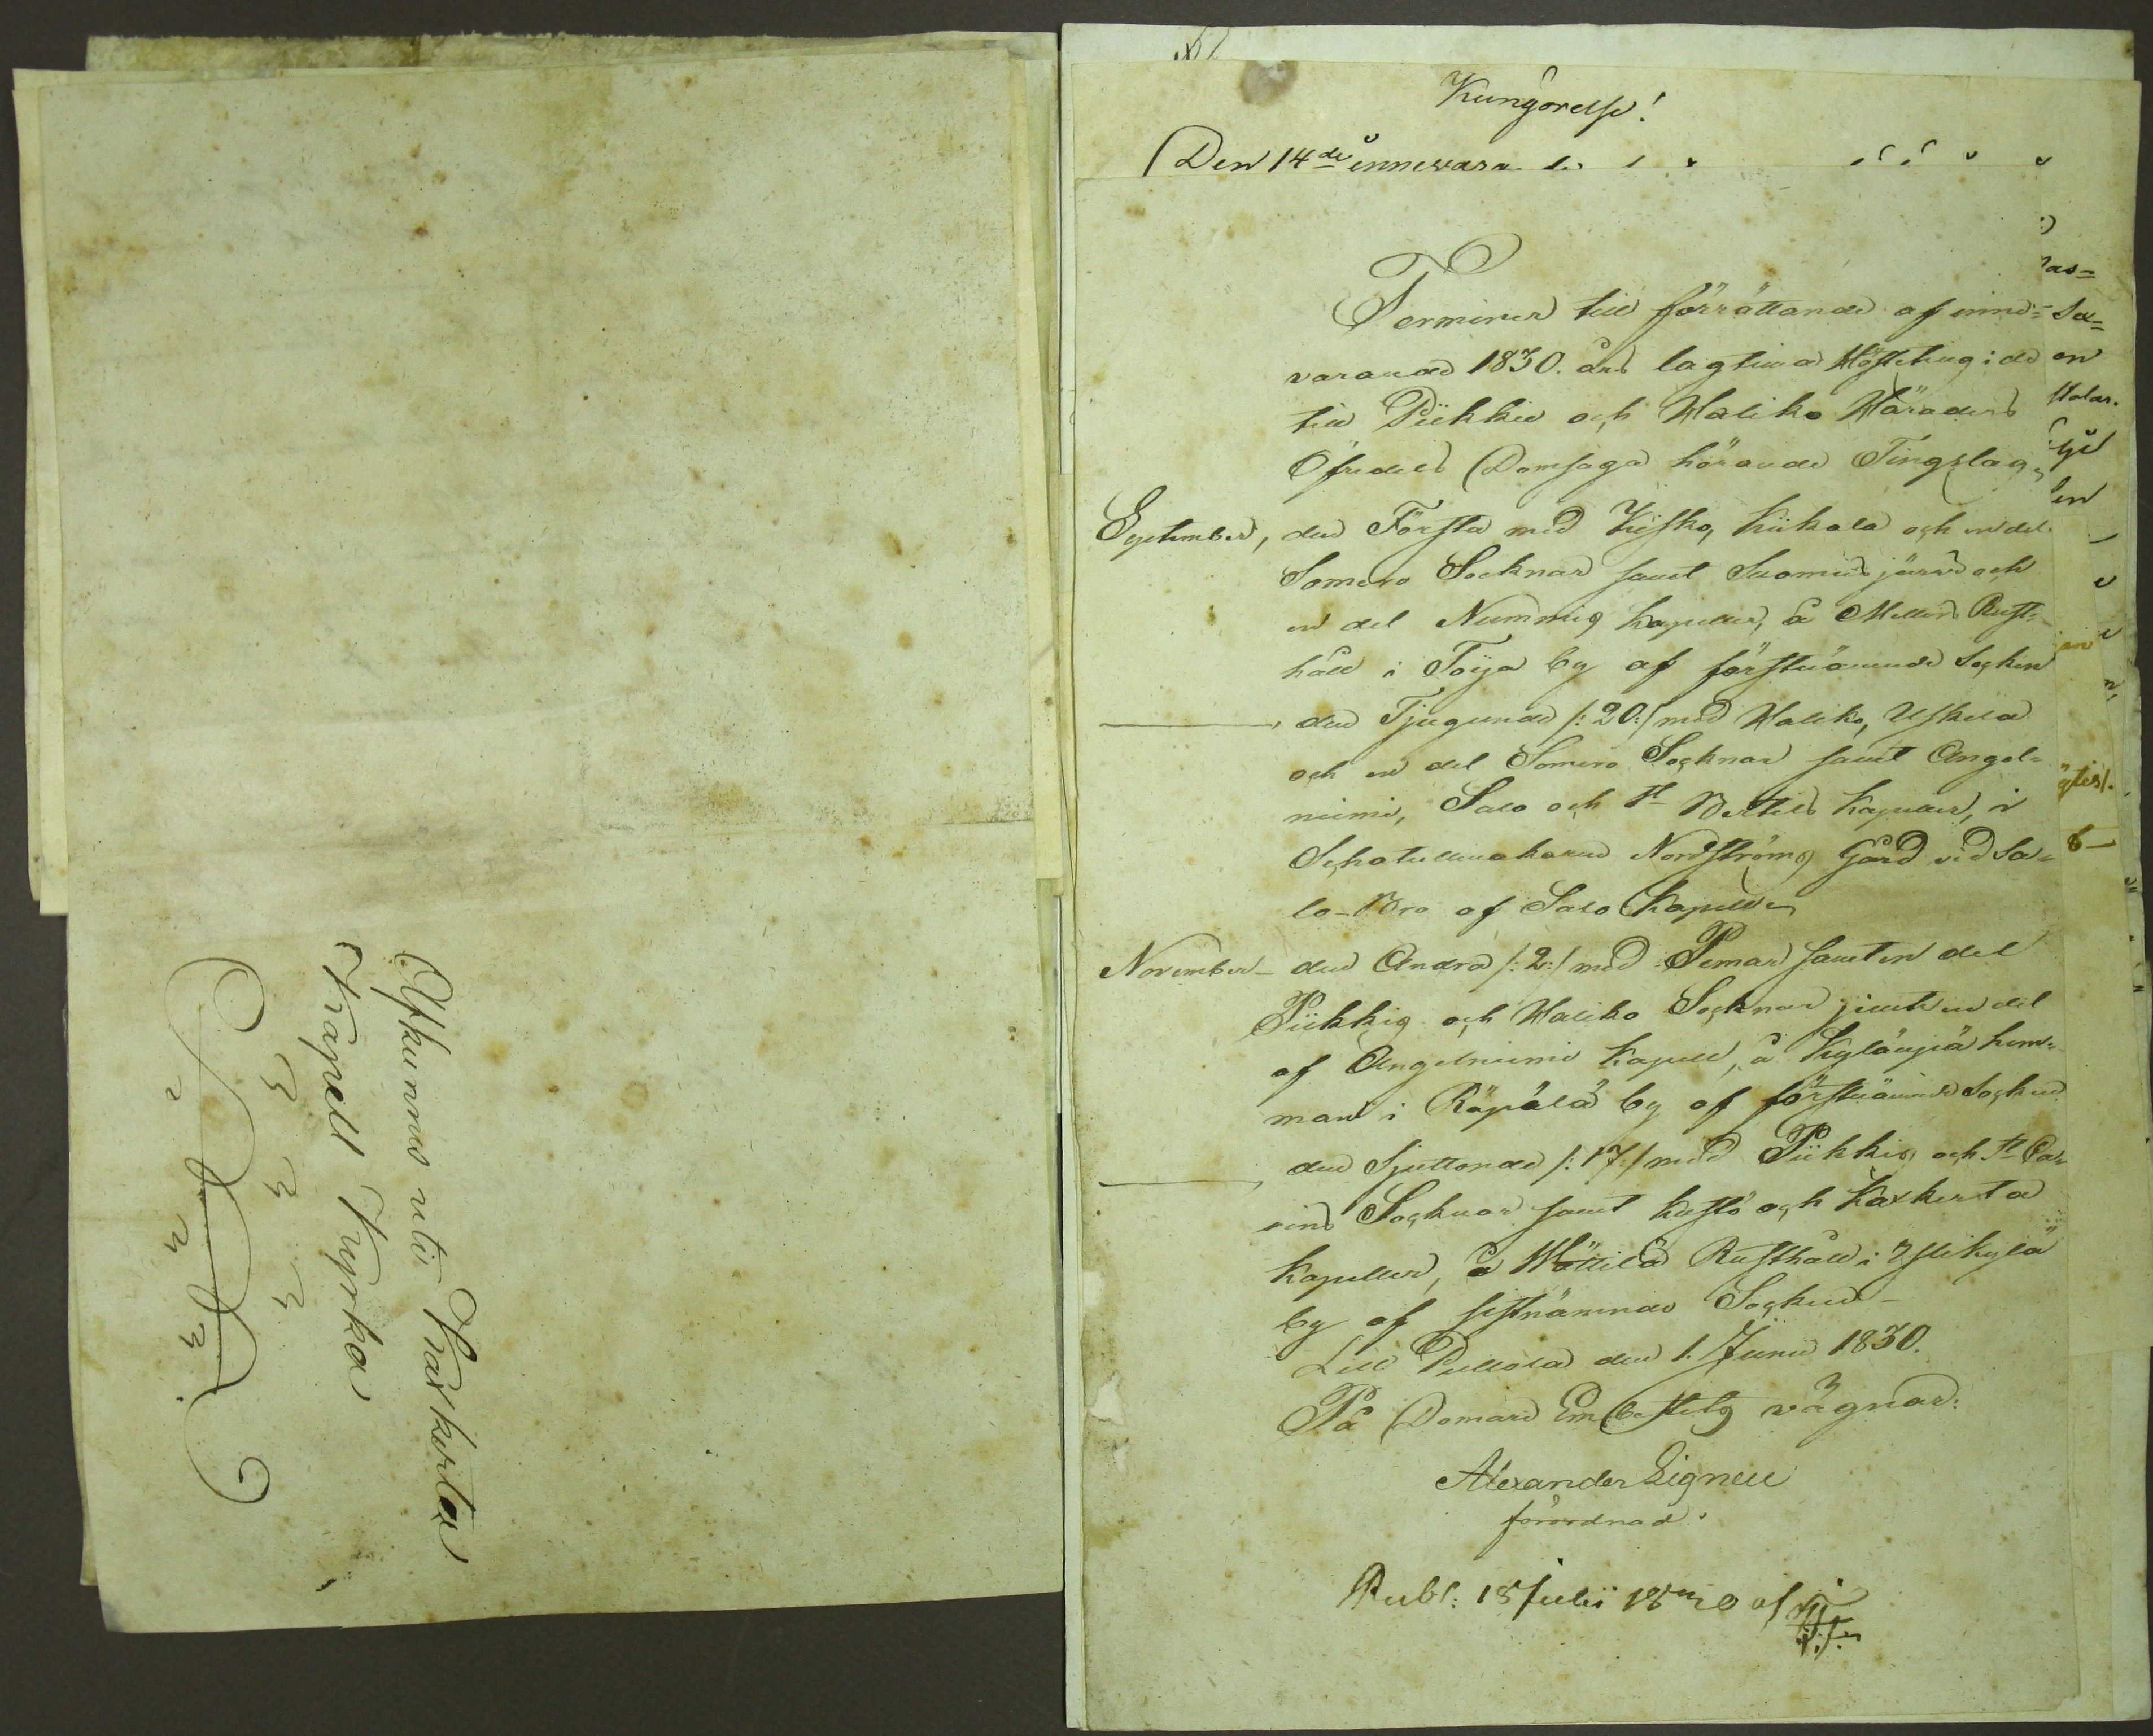 Afkunnas uti Karkerta
Kapell Kyrka
Kungörelse!
Den 14de innevara
Terminer till förrättande af inne=
varande 1830. års lagtima Hösteting i de
till Piikkie och Haliko Häraders
Öfredels Domsaga hörande Tingslag,
September, den Första med Kisko, Kiikala och en del
Somero Socknar samt Suomusjärvi och
en del Nummis Kapeller, å Mellers Rust=
håll i Toija by af förstnämnde Socken
, den Tjugunde /:20:/ med Haliko, Uskela
och en del Somero Socknar samt Angel=
niemi, Salo och St Bertils Kapeller, i
Schatullmakaren Nordströms Gård vid Sa=
lo-Bro af Salo Kapell
November den Andra /:2:/ med Pemar samt en del
Piikkis och Haliko Socknar jemte en del
af Angelniemi Kapell, å Kylänpä hem=
man i Räpälä by af förstnämnde Socken
, den Sjuttonde /:17:/ med Piikkis och St Ca=
rins Socknar samt Kustö och Kaxkerta
Kapeller, å Höttilä Rusthåll i Ystikylä
by af sistnämnde Socken
Lill Pullola den 1. Junii 1830.
På Domare Embetets vägnar:
Alexander Eignell
förordnad.
Publ: 18 Julii 1830 af
as=
Sa=
en
gtis/.
6